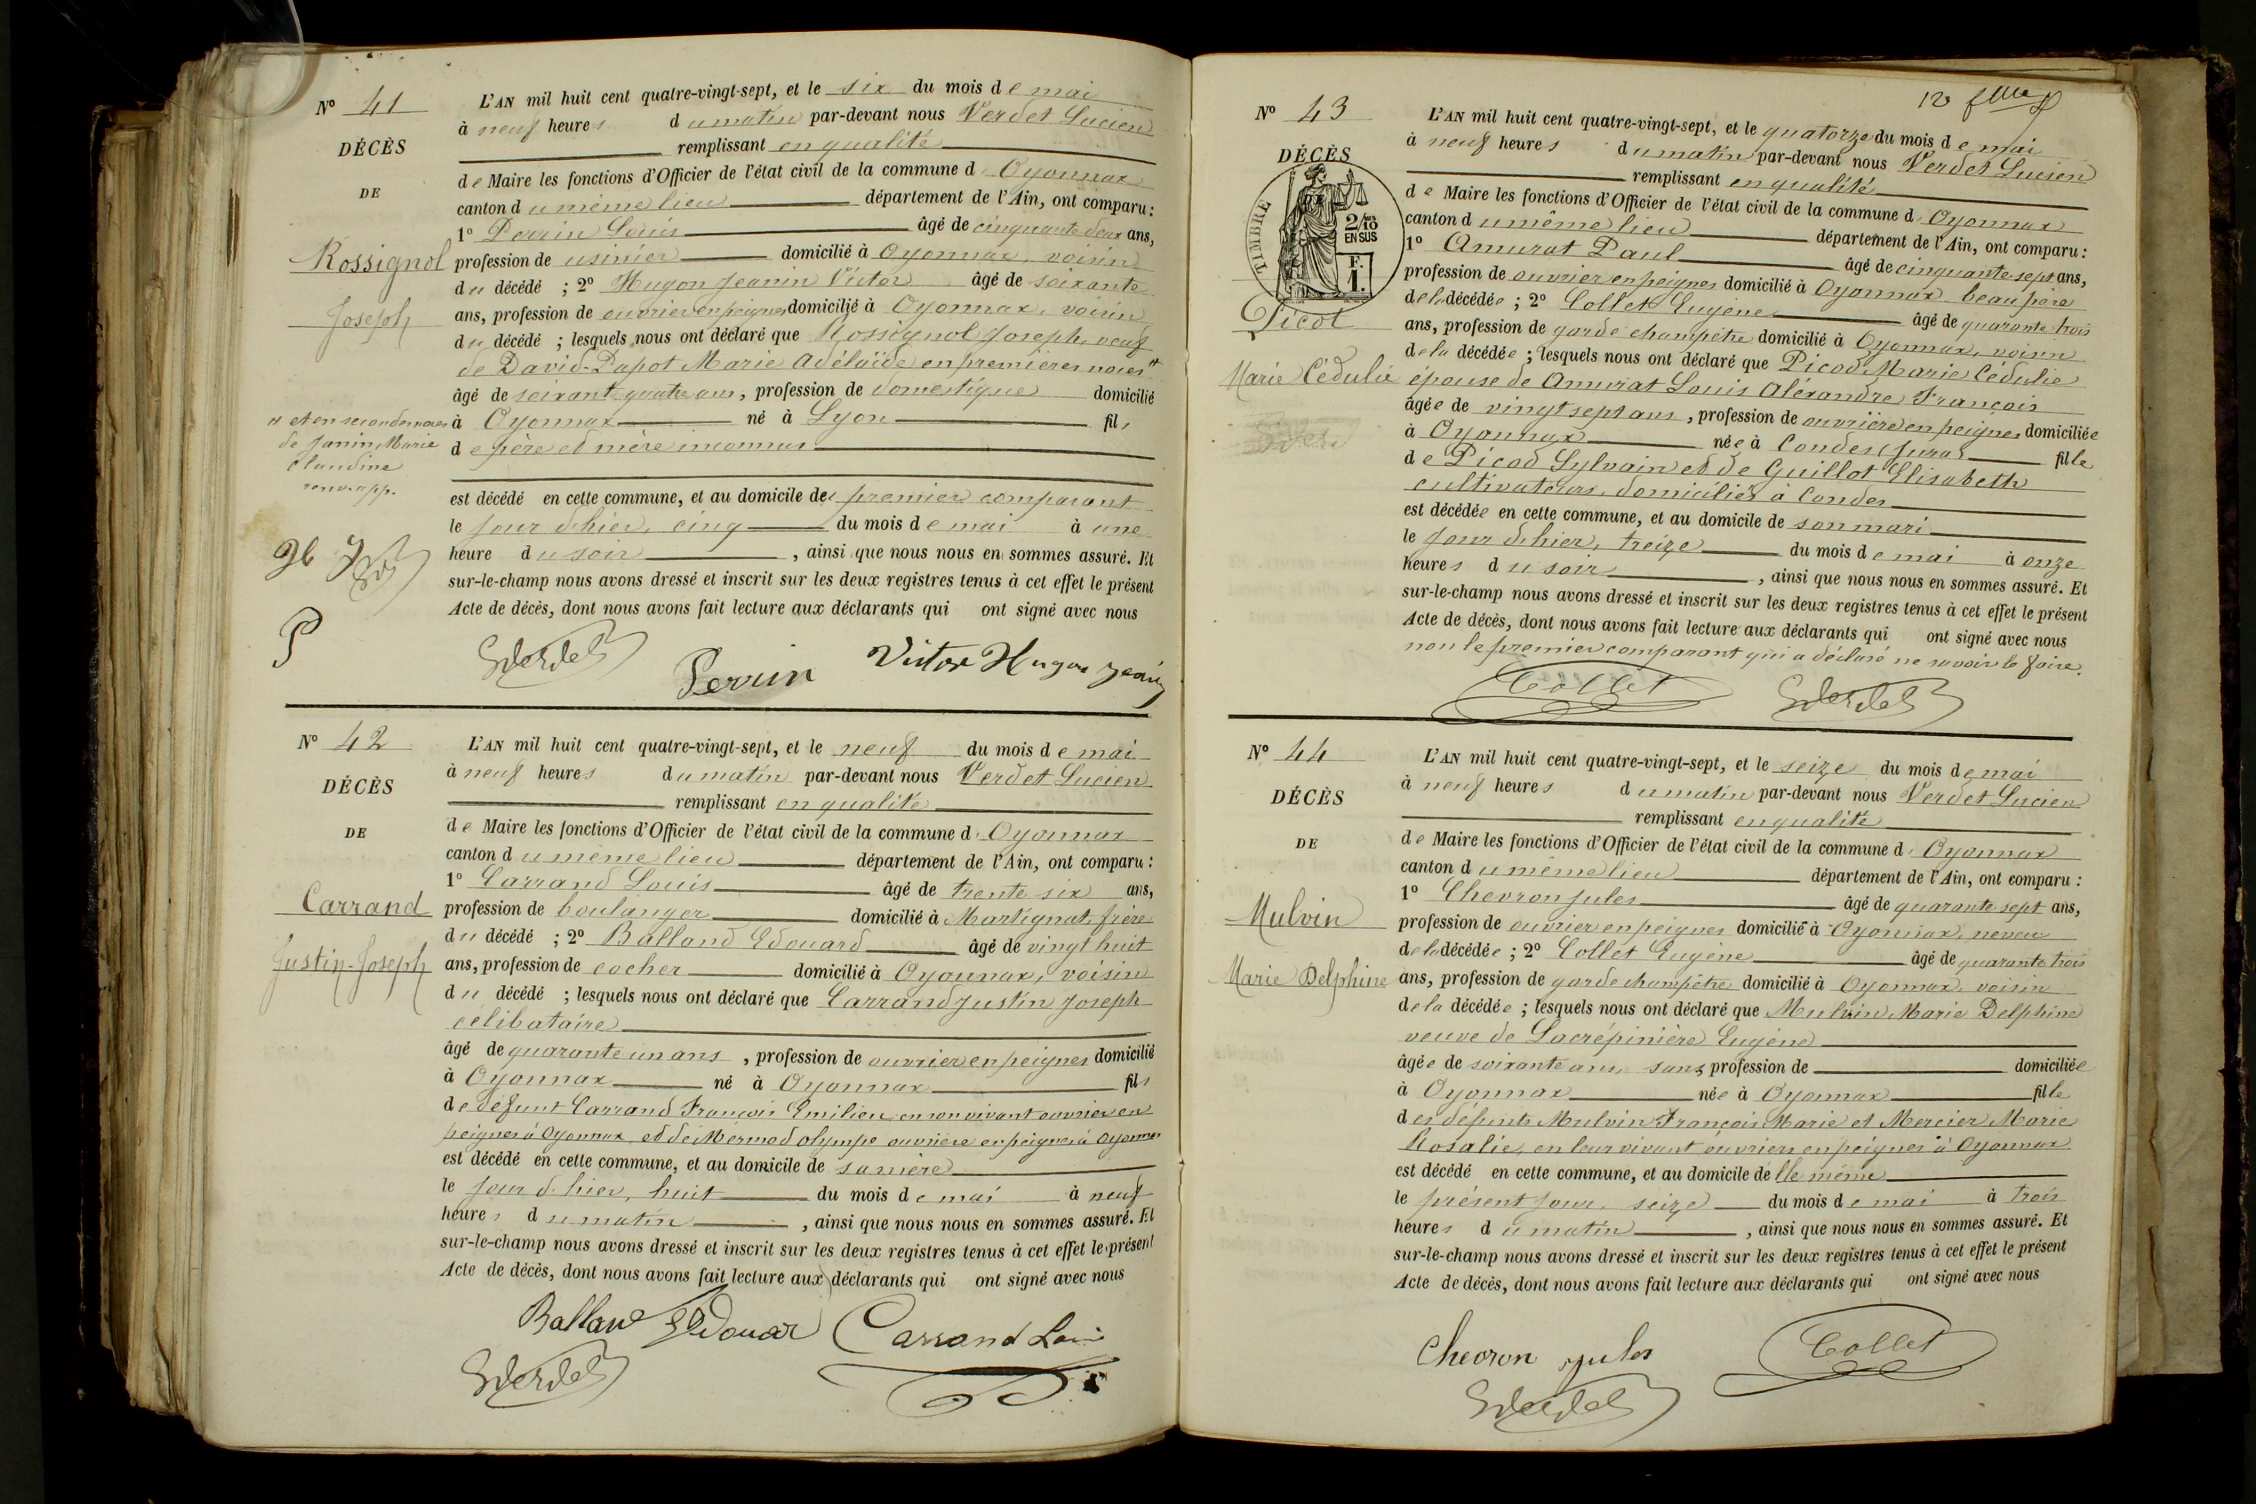 N° 41
DÉCÈS
DE
Rossignol
Joseph
L'AN mil huit cent quatre-vingt-sept, et le six du mois de mai
à neuf heures du matin par-devant nous Verdet Lucien
remplissant en qualité
de Maire les fonctions d'Officier de l'état civil de la commune d'Oyonnax
canton du même lieu département de l'Ain, ont comparu :
1° Perrin Louis âgé de cinquante deux ans,
profession de usinier domicilié à Oyonnax, voisin
du décédé ; 2° Hugon Jeanin Victor âgé de soixante
ans, profession de ouvrier en peignes domicilié à Oyonnax, voisin
du décédé ; lesquels nous ont déclaré que Rossignol Joseph, veuf
de David-Papot Marie Adélaïde en premières noces "
âgé de soixant quatre ans, profession de domestique domicilié
à Oyonnax né à Lyon fils
de père et mère inconnus
" et en secondes noces
de Janin, Marie
Claudine
renv. app.
est décédé en cette commune, et au domicile de premier comparant
le jour d'hier, cinq du mois de mai à une
heure du soir, ainsi que nous nous en sommes assuré. Et
sur-le-champ nous avons dressé et inscrit sur les deux registres tenus à cet effet le présent
Acte de décès, dont nous avons fait lecture aux déclarants qui ont signé avec nous
P
Verdet Perrin Victor Hugon Jeanin
N° 42
DÉCÈS
DE
Carrand
Justin-Joseph
L'AN mil huit cent quatre-vingt-sept, et le neuf du mois de mai
à neuf heures du matin par-devant nous Verdet Lucien
remplissant en qualité
de Maire les fonctions d'Officier de l'état civil de la commune d'Oyonnax
canton du même lieu département de l'Ain, ont comparu :
1° Carrand Louis âgé de trente six ans,
profession de boulanger domicilié à Martignat, frère
du décédé ; 2° Balland Edouard âgé de vingt huit
ans, profession de cocher domicilié à Oyonnax, voisin
du décédé ; lesquels nous ont déclaré que Carrand Justin Joseph
celibataire
âgé de quarante un ans, profession de ouvrier en peignes domicilié
à Oyonnax né à Oyonnax fils
de défunt Carrand François Emilien en son vivant ouvrier en
peignes à Oyonnax et de Mermod olympe ouvrière en peignes à Oyonnax
est décédé en cette commune, et au domicile de sa mère
le jour d'hier, huit du mois de mai à neuf
heures du matin, ainsi que nous nous en sommes assuré. Et
sur-le-champ nous avons dressé et inscrit sur les deux registres tenus à cet effet le présent
Acte de décès, dont nous avons fait lecture aux déclarants qui ont signé avec nous
Balland Edouar Carrand Louis
Verdet
N° 43
DÉCÈS
TIMBRE
2/10
EN SUS
F.
1.
Picot
Marie Cédulie
L'AN mil huit cent quatre-vingt-sept, et le quatorze du mois de mai
à neuf heures du matin par-devant nous Verdet Lucien
remplissant en qualité
de Maire les fonctions d'Officier de l'état civil de la commune d'Oyonnax
canton du même lieu département de l'Ain, ont comparu :
1° Amurat Paul âgé de cinquante-sept ans,
profession de ouvrier en peignes domicilié à Oyonnax beau père
de la décédée ; 2° Collet Eugène âgé de quarante trois
ans, profession de garde champêtre domicilié à Oyonnax, voisin
de la décédée ; lesquels nous ont déclaré que Picod Marie Cédulie
épouse de Amurat Louis Aléxandre François
âgée de vingt sept ans, profession de ouvrière en peignes domiciliée
à Oyonnax née à Condes (Jura) fille
de Picod Sylvain et de Guillot Elisabeth
cultivateurs, domiciliés à Condes
est décédée en cette commune, et au domicile de son mari
le jour d'hier, treize du mois de mai à onze
heures du soir, ainsi que nous nous en sommes assuré. Et
sur-le-champ nous avons dressé et inscrit sur les deux registres tenus à cet effet le présent
Acte de décès, dont nous avons fait lecture aux déclarants qui ont signé avec nous
non le premier comparant qui a déclaré ne savoir le faire.
Collet Verdet
N° 44
DÉCÈS
DE
Mulvin
Marie Delphine
L'AN mil huit cent quatre-vingt-sept, et le seize du mois de mai
à neuf heures du matin par-devant nous Verdet Lucien
remplissant en qualité
de Maire les fonctions d'Officier de l'état civil de la commune d'Oyonnax
canton du même lieu département de l'Ain, ont comparu :
1° Chevron Jules âgé de quarante sept ans,
profession de ouvrier en peignes domicilié à Oyonnax, neveu
de la décédée ; 2° Collet Eugène âgé de quarante trois
ans, profession de garde champêtre domicilié à Oyonnax, voisin
de la décédée ; lesquels nous ont déclaré que Mulvin Marie Delphine
veuve de Lacrépinière Eugène
âgée de soixante ans, sans profession de domiciliée
à Oyonnax née à Oyonnax fille
des défunts Mulvin François Marie et Mercier Marie
Rosalie, en leur vivant ouvriers en peignes à Oyonnax
est décédé en cette commune, et au domicile de lle même
le présent jour, seize du mois de mai à trois
heures du matin, ainsi que nous nous en sommes assuré. Et
sur-le-champ nous avons dressé et inscrit sur les deux registres tenus à cet effet le présent
Acte de décès, dont nous avons fait lecture aux déclarants qui ont signé avec nous
Chevron Jules Collet
Verdet